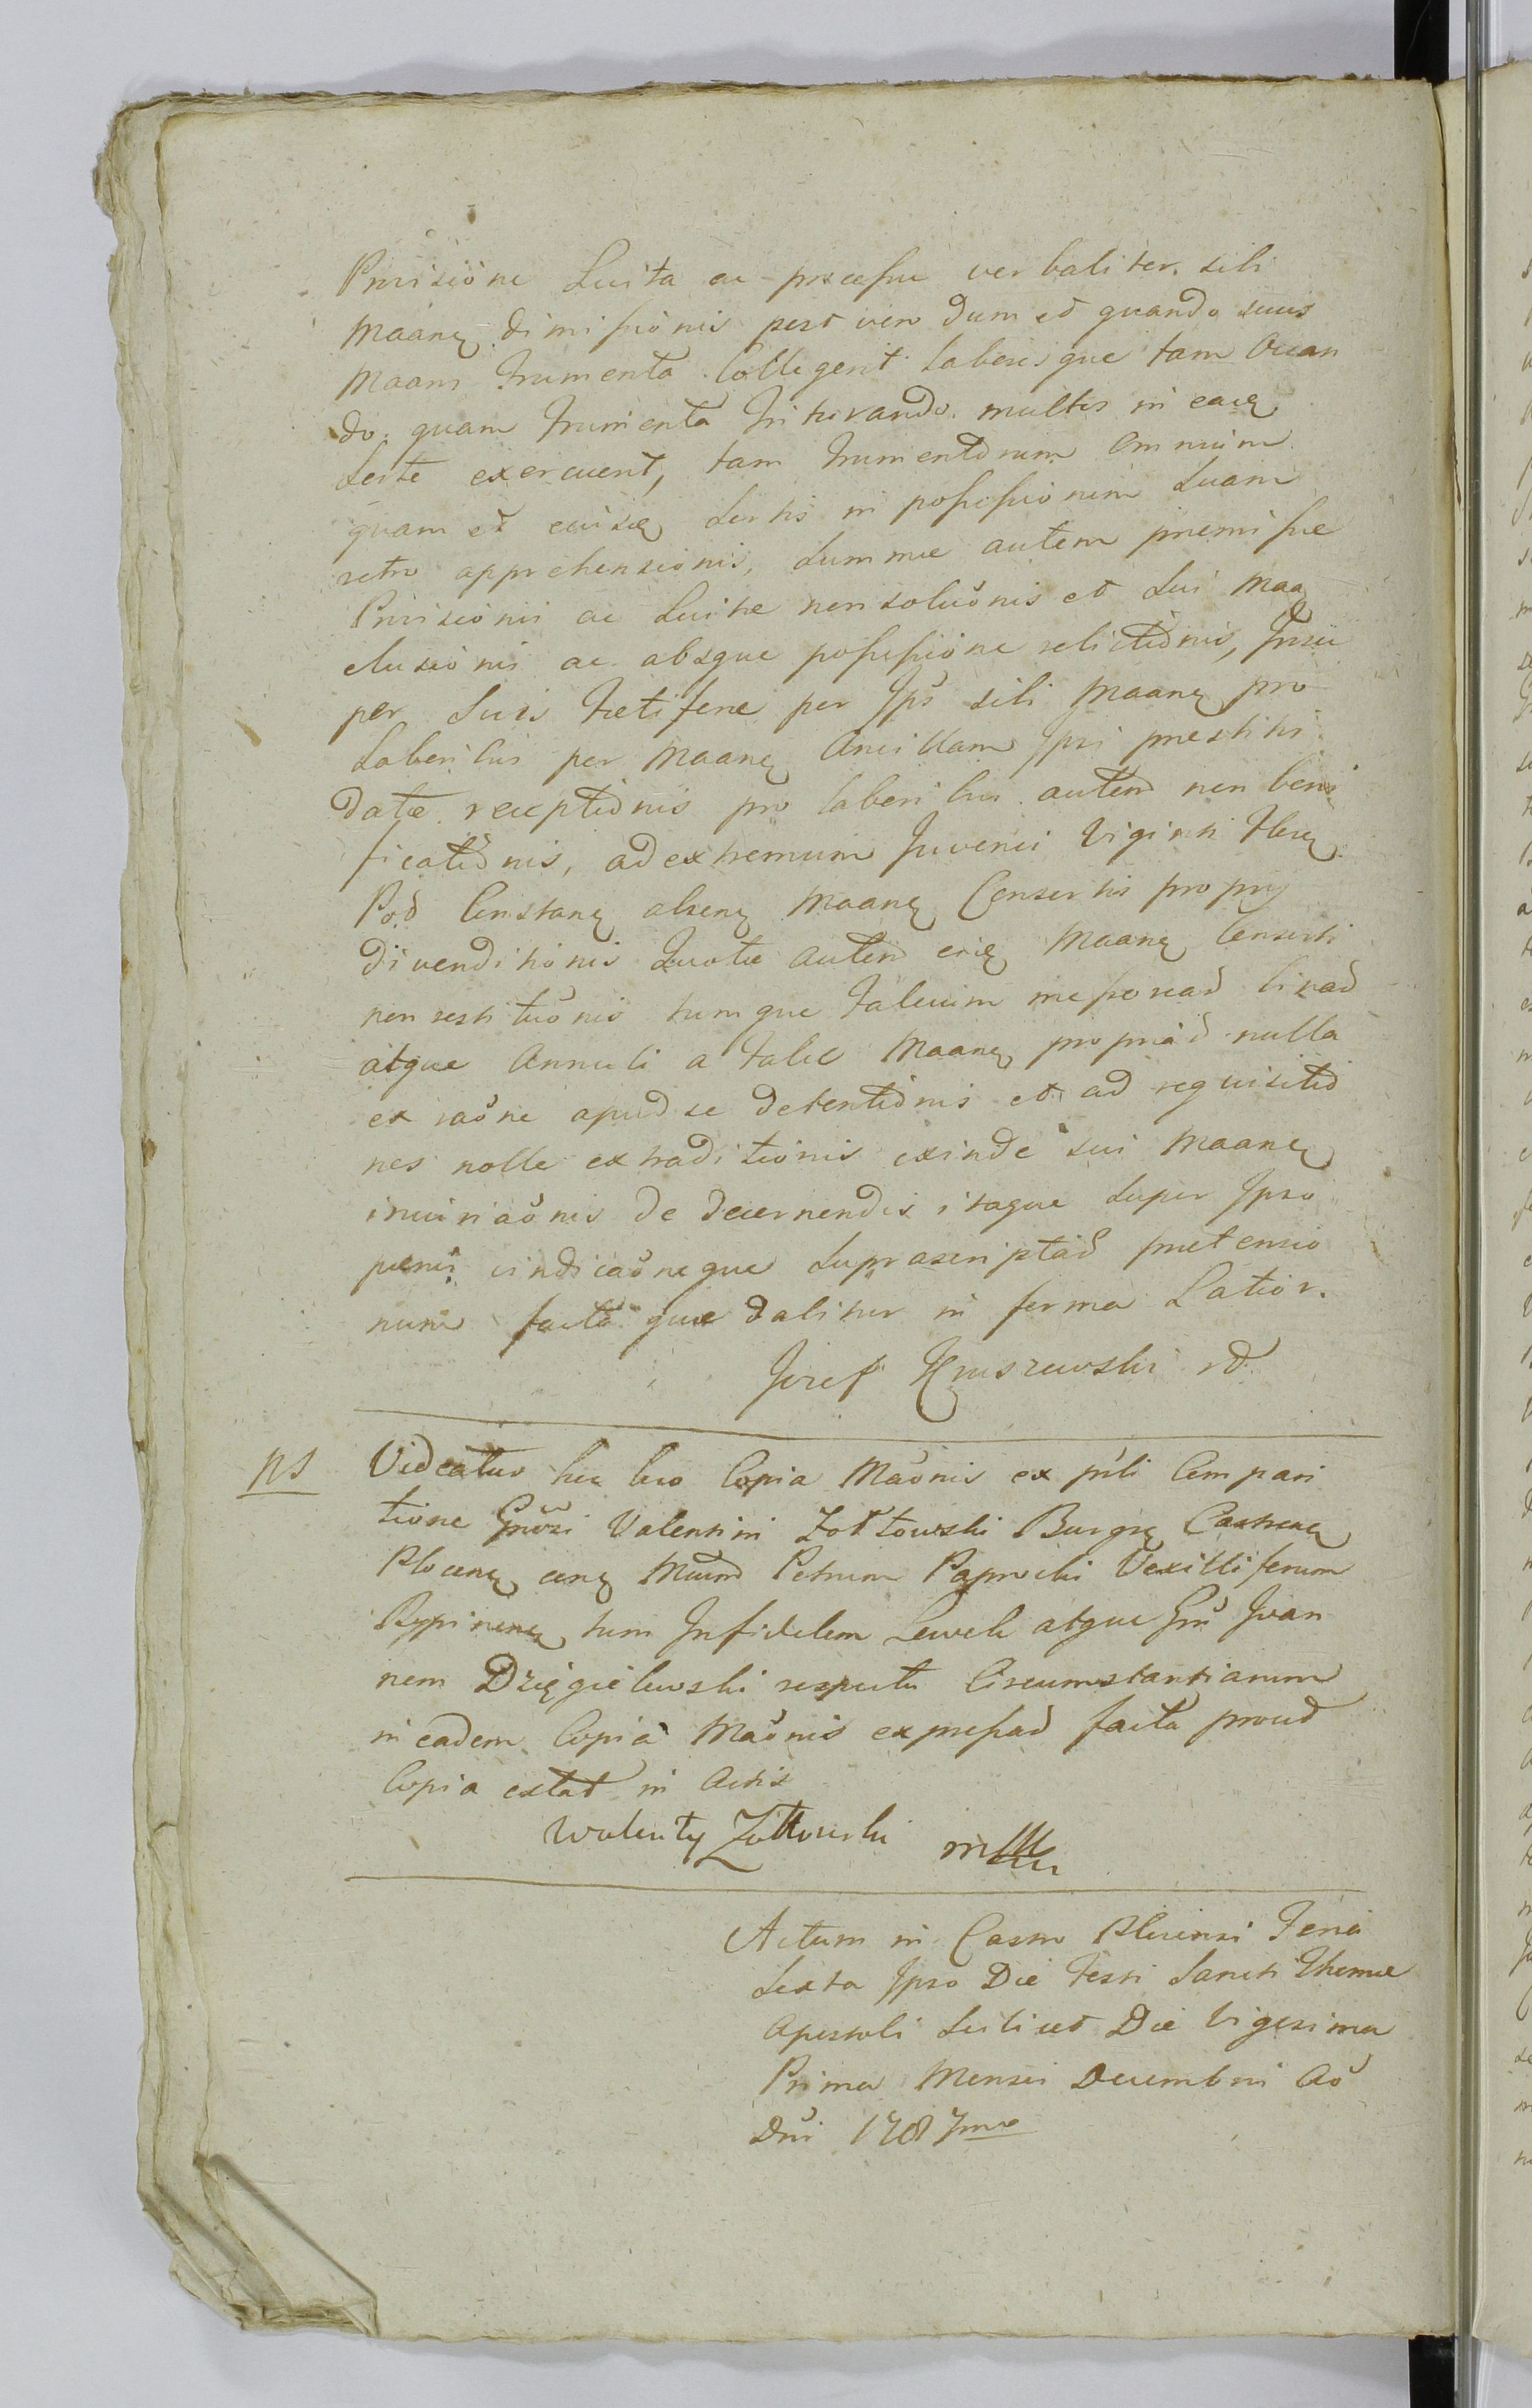 Provisione Luita ac processu verbaliter sibi
Maanę dimissionis post vero dum et quando suus
Maans frumenta Collegerit laboresque tam Arran
do quam frumenta Triturando multos in eadę
Sorte exercuerit, tam frumentorum omnium
quam et eiusdę Sortis in possessionem suam
retro apprehensionis, summae autem praemissae
Provisionis ac Luitae non solutionis et sui Maaę
elusionis ac absque possessione relictionis, Insu
per Suis Fetiferae per Ips sibi Maanę pro
Laboribus per Maanę Ancillam Ipsi praestitis
datae receptionis pro laboribus autem non boni
ficationis, ad extremum Juvenci Viginti Flreę
Pod Constanę alienę Maanę Consortis proprij
divenditionis Quotae autem eiudę Maanę Consorti
non restitutionis tumque
atque Annuli a Maanę propriad nulla
ex raone apud se detentionis et ad requisitio
nes nolle extraditionis exinde sui Maanę
iniuriaonis de decernendis itaque super Ipso
paenis vindicaoneque suprascriptad praetensio
num facta quae dabitur in forma Latior.
Jozef Kruszewski
NS Videatur hic loco Copia Maonis ex prli Compari
tione Grosi Valentini Zołtowski Burgrę Castrenę
Plocenę conę Mcum Petrum Paprocki Vexilliferum
Rypinenę tum Infidelem Lewek atque Gr Joan
nem Dzięgielewski respectu Circumstantiarum
in eadem Copia Maonis expressad facta prout
Copia extat in Actis
Walenty Zołtowski
Actum in Castro Plocensi Feria
Sexta Ipso Die Festi Sancti Thomae
Apostoli scilicet Die Vigesima
Prima Mensis Decembris Ao
Dni 1787mo